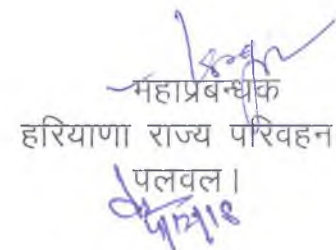 महाप्रबन्धक
हरियाणा राज्य परिवहन
पलवल।